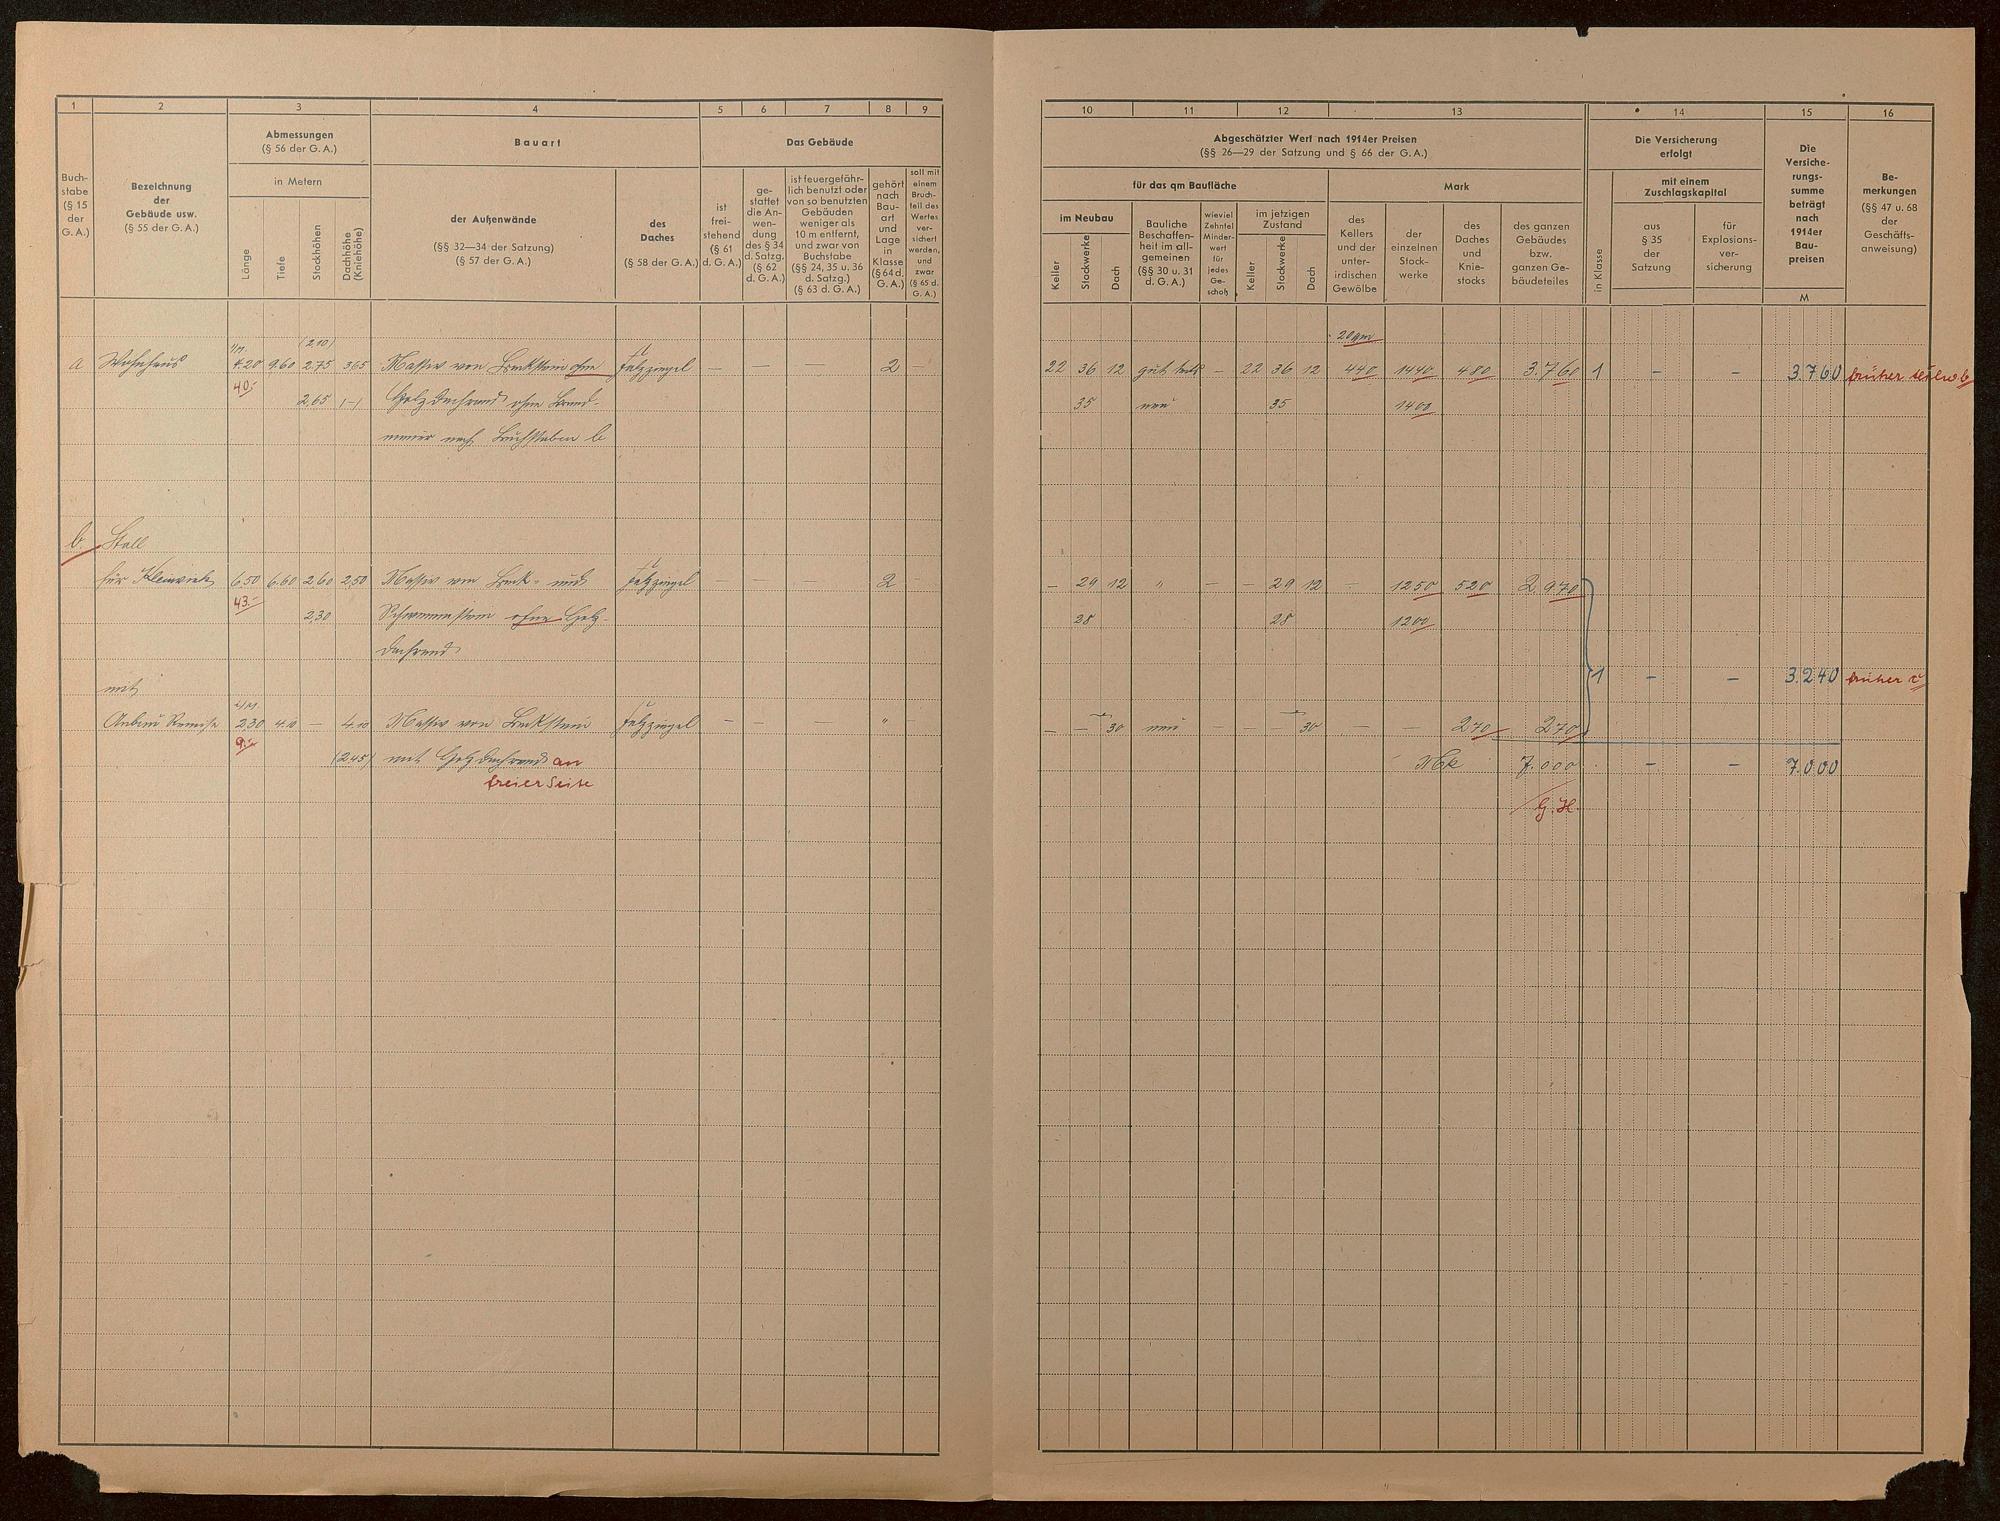 1 2 3 4 5 6 7 8 9
Abmessungen
(§ 56 der G. A.)
Bauart
Das Gebäude
Buch-
stabe
(§ 15
der
G. A.)
Bezeichnung
der
Gebäude usw.
(§ 55 der G. A.)
in Metern
Länge
Tiefe
Stockhöhen
Dachhöhe
(Kniehöhe)
der Außenwände
(§§ 32—34 der Satzung)
(§ 57 der G. A.)
des
Daches
(§ 58 der G. A.)
ist
frei-
stehend
(§ 61
d. G. A.)
ge-
stattet
die An-
wen-
dung
des § 34
d. Satzg.
(§ 62
d. G. A.)
ist feuergefähr-
lich benutzt oder
von so benutzten
Gebäuden
weniger als
10 m entfernt,
und zwar von
Buchstabe
(§§ 24, 35 u. 36
d. Satzg.)
(§ 63 d. G. A.)
gehört
nach
Bau-
art
und
Lage
in
Klasse
(§ 64 d.
G. A.)
soll mit
einem
Bruch-
teil des
Wertes
ver-
sichert
werden,
und
zwar
(§ 65 d.
G. A.)
(2,10)
a Wohnhaus 4.20 9.60 2.75 3.65 Massiv von Backstein ohne Falzziegel — — — 2 —
40.-
2,65 (—) Holzdachrand ohne Brand-
mauer nach Buchstaben b
b Stall
für Kleinvieh 6.50 6.60 2.60 2.50 Massiv von Back- und Falzziegel — — — 2
43.-
2,30 Schwemmstein ohne Holz-
dachrand
mit
Anbau Remise 2.30 4.10 — 4.10 Massiv von Backstein Falzziegel — — — "
9.-
(2.45) mit Holzdachrand an
freier Seite
10 11 12 13 14 15 16
Abgeschätzter Wert nach 1914er Preisen
(§§ 26—29 der Satzung und § 66 der G. A.)
Die Versicherung
erfolgt
Die
Versiche-
rungs-
summe
beträgt
nach
1914er
Bau-
preisen
M
Be-
merkungen
(§§ 47 u. 68
der
Geschäfts-
anweisung)
für das qm Baufläche
Mark
mit einem
Zuschlagskapital
im Neubau
Keller
Stockwerke
Dach
Bauliche
Beschaffen-
heit im all-
gemeinen
(§§ 30 u. 31
d. G. A.)
wieviel
Zehntel
Minder-
wert
für
jedes
Ge-
schoß
im jetzigen
Zustand
Keller
Stockwerke
Dach
des
Kellers
und der
unter-
irdischen
Gewölbe
der
einzelnen
Stock-
werke
des
Daches
und
Knie-
stocks
des ganzen
Gebäudes
bzw.
ganzen Ge-
bäudeteiles
in Klasse
aus
§ 35
der
Satzung
für
Explosions-
ver-
sicherung
20 qm
22 36 12 gut teils — 22 36 12 440 1440 480 3.760 1 — — 3.760 früher teilw. b
35 neu 35 1400
— 29 12 " — — 29 12 — 1250 520 2.970
28 28 1200
1 — — 3.240 früher
— — 30 neu — — — 30 — — 270 270
Mk 7.000 — — 7.000
G. H.